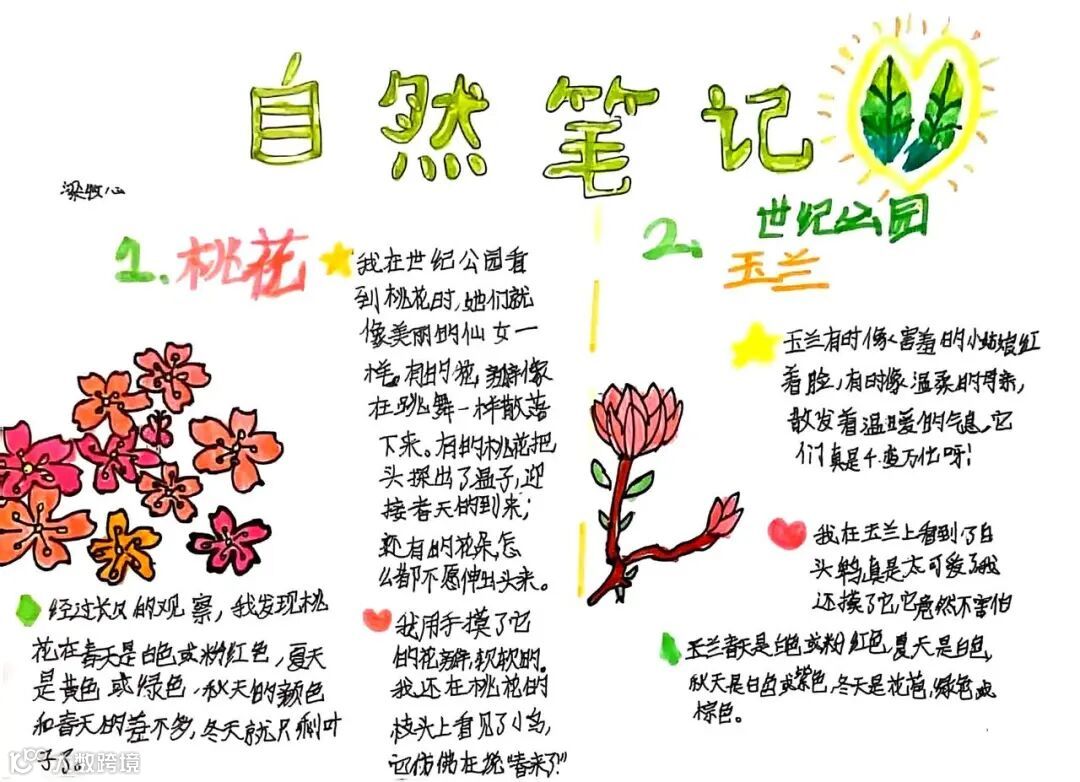 自然笔记
梁牧心
世纪公园
1.桃花
我在世纪公园看
到桃花时,她们就
像美丽的仙女一
样。有的花瓣像
在跳舞一样散落
下来。有的桃花把
头探出了盖子,迎
接春天的到来;
还有的花朵怎
么都不愿伸出头来。
我用手摸了它
的花瓣,软软的。
我还在桃花的
枝头上看见了小鸟,
它仿佛在说“春来了!”
经过长久的观察,我发现桃
花在春天是白色或粉红色,夏天
是黄色或绿色,秋天的颜色
和春天的差不多,冬天就只剩叶
子了。
2.
玉兰
玉兰有时像害羞的小姑娘红
着脸,有时像温柔的母亲,
散发着温暖的气息。它
们真是千变万化呀!
我在玉兰上看到了白
头鹎真是太可爱了我
还摸了它,它竟然不害怕
玉兰春天是白色或粉红色,夏天是白色,
秋天是白色或紫色,冬天是花苞,绿色或
棕色。
大数跨境